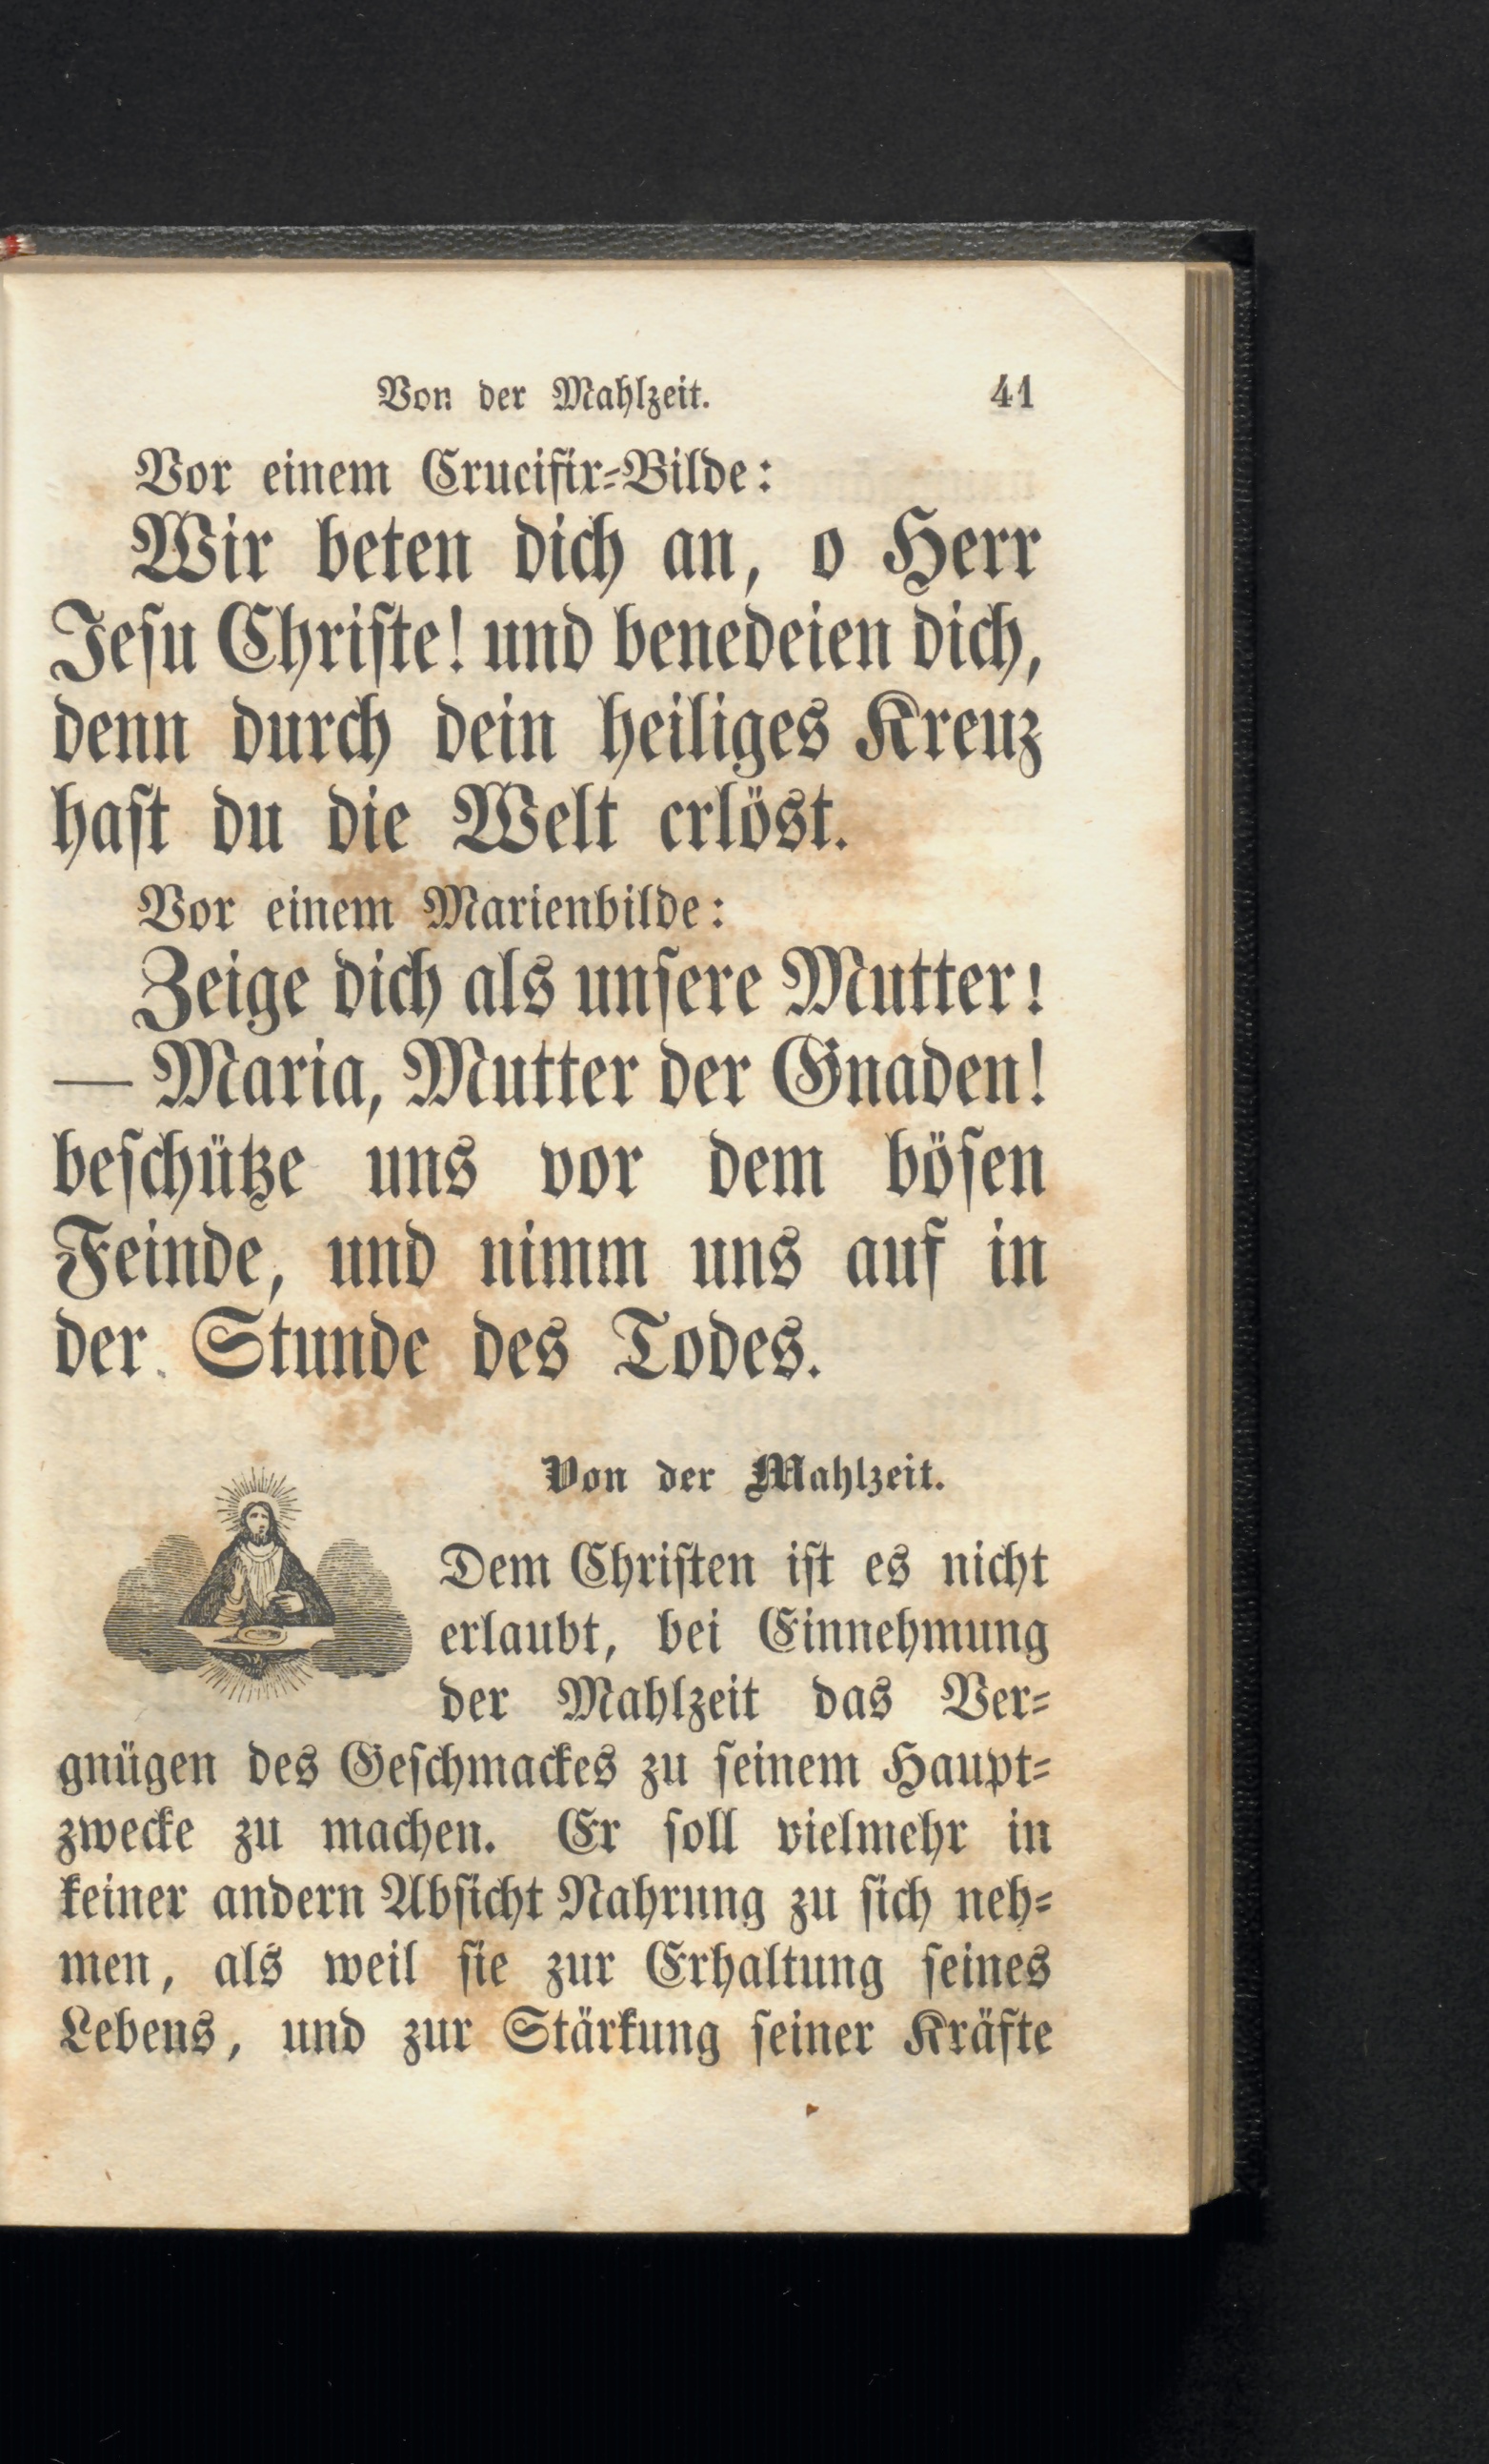 Von der Mahlzeit. 41
Vor einem Crucifix=Bilde:
Wir beten dich an, o Herr
Jeſu Chriſte! und benedeien dich,
denn durch dein heiliges Kreuz
haſt du die Welt erlöst.
Vor einem Marienbilde:
Zeige dich als unſere Mutter!
— Maria, Mutter der Gnaden!
beſchütze uns vor dem böſen
Feinde, und nimm uns auf in
der Stunde des Todes.
Von der Mahlzeit.
Dem Chriſten iſt es nicht
erlaubt, bei Einnehmung
der Mahlzeit das Ver=
gnügen des Geſchmackes zu ſeinem Haupt=
zwecke zu machen. Er ſoll vielmehr in
keiner andern Abſicht Nahrung zu ſich neh=
men, als weil ſie zur Erhaltung ſeines
Lebens, und zur Stärkung ſeiner Kräfte